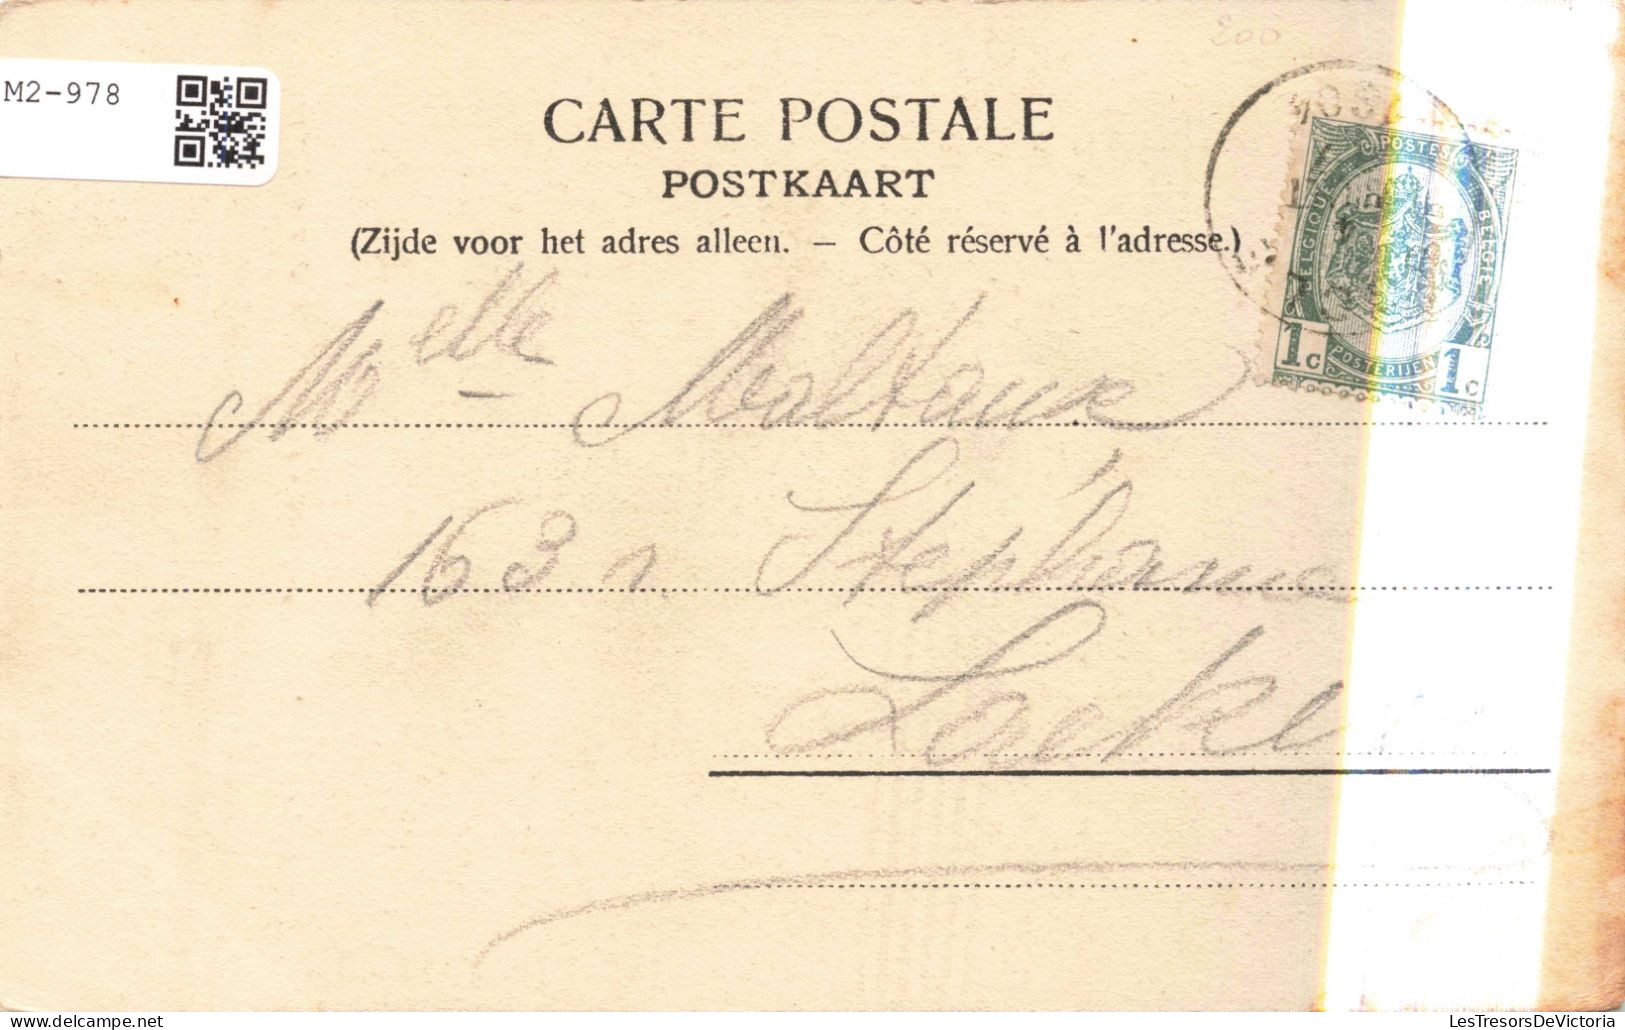 M2-978
200
CARTE POSTALE
POSTKAART
(Zijde voor het adres alleen. – Côté réservé à l'adresse.)
POSTES
BELGIQUE
BELGIE
POSTERIJEN
1c 1c
Melle Maltaux
163 r Stéphanie
Laeken
LesTresorsDeVictoria